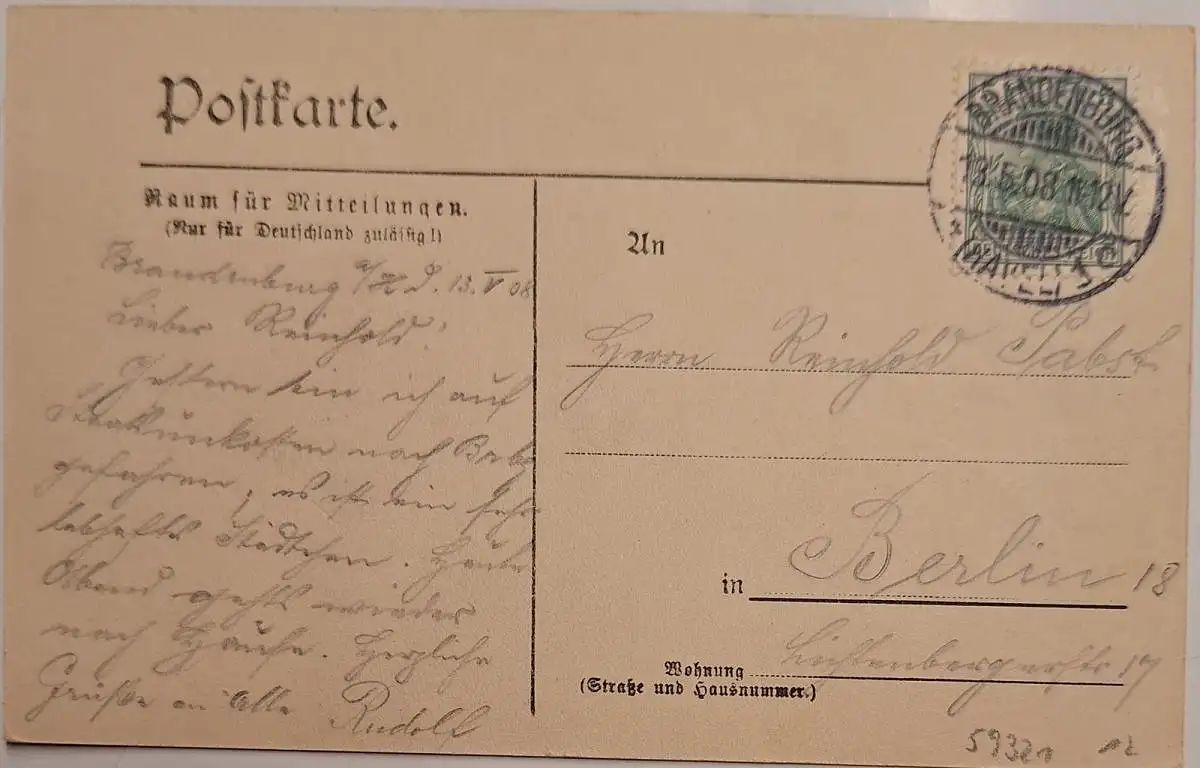 Postkarte.
BRANDENBURG
13.5.08.11-12V.
(HAVEL) 1
Raum für Mitteilungen.
(Nur für Deutschland zulässig!)
Brandenburg a/H d. 13. V 08
Lieber Reinhold!
Gestern bin ich auf
nach Brbg
gefahren, es ist ein sehr
lebhaftes Städtchen. Heute
Abend gehts wieder
nach Hause. Herzliche
Grüße an Alle Rudolf
An
Herrn Reinhold Pabst
in Berlin 18
Wohnung Lichtenbergerstr 17
(Straße und Hausnummer.)
59321 12